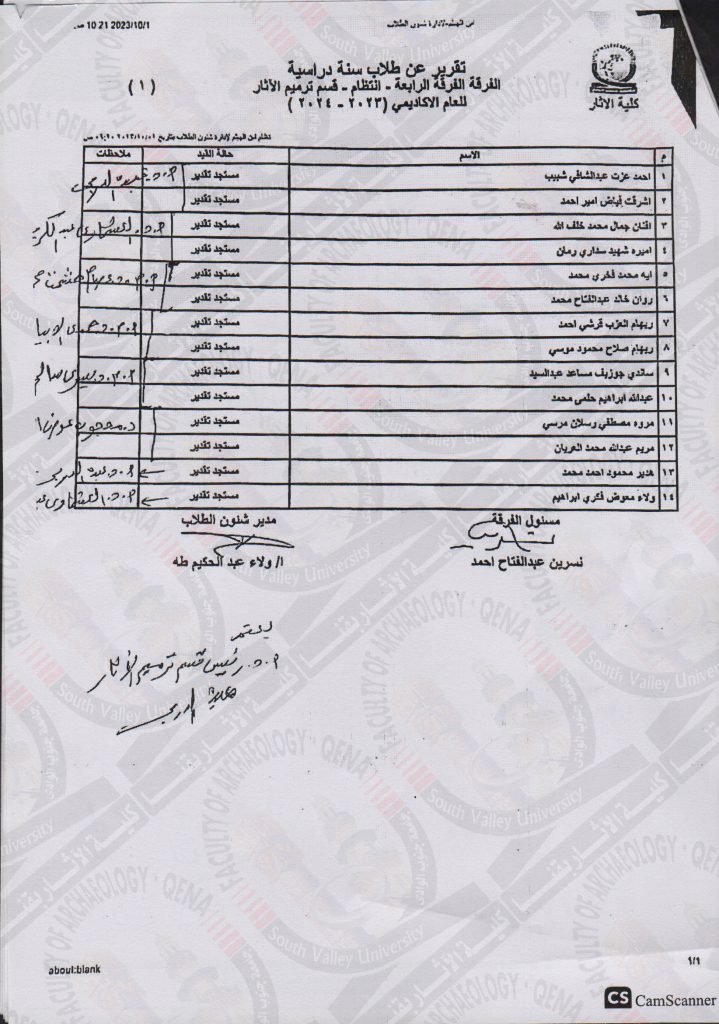 2023/10/1 10 21 ص
ابن الهيثم-لإدارة شئون الطلاب
تقرير عن طلاب سنة دراسية
الفرقة الفرقة الرابعة - انتظام - قسم ترميم الآثار
للعام الاكاديمي (٢٠٢٣ - ٢٠٢٤)
(١)
كلية الآثار
نظام ابن الهيثم لإدارة شئون الطلاب بتاريخ ٢٠٢٣/١٠/٠١
م الاسم حالة القيد ملاحظات
١ احمد عزت عبدالشافي شبيب مستجد تقدير
٢ اشرقت فياض امير احمد مستجد تقدير
٣ افنان جمال محمد خلف الله مستجد تقدير
٤ اميره شهيد سداري رمان مستجد تقدير
٥ ايه محمد فخري محمد مستجد تقدير
٦ روان خالد عبدالفتاح محمد مستجد تقدير
٧ ريهام العزب قرشي احمد مستجد تقدير
٨ ريهام صلاح محمود موسي مستجد تقدير
٩ ساندي جوزيف مساعد عبدالسيد مستجد تقدير
١٠ عبدالله ابراهيم حلمى محمد مستجد تقدير
١١ مروه مصطفي رسلان مرسي مستجد تقدير
١٢ مريم عبدالله محمد العريان مستجد تقدير
١٣ هدير محمود احمد محمد مستجد تقدير
١٤ ولاء معوض فكري ابراهيم مستجد تقدير
مسئول الفرقة
نسرين عبدالفتاح احمد
مدير شئون الطلاب
ا/ ولاء عبد الحكيم طه
يعتمد
رئيس قسم ترميم الآثار
FACULTY OF ARCHAEOLOGY · QENA
South Valley University
about:blank
١/١
CS CamScanner